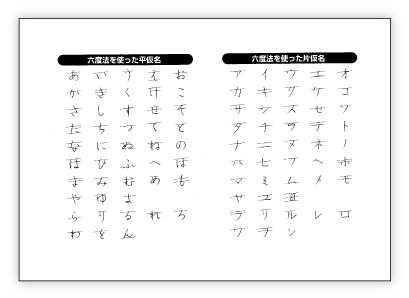 六度法を使った平仮名
あ い う え お
か き く け こ
さ し す せ そ
た ち つ て と
な に ぬ ね の
は ひ ふ へ ほ
ま み む め も
や ゆ よ
ら り る れ ろ
わ を ん
六度法を使った片仮名
ア イ ウ エ オ
カ キ ク ケ コ
サ シ ス セ ソ
タ チ ツ テ ト
ナ ニ ヌ ネ ノ
ハ ヒ フ ヘ ホ
マ ミ ム メ モ
ヤ ユ ヨ
ラ リ ル レ ロ
ワ ヲ ン